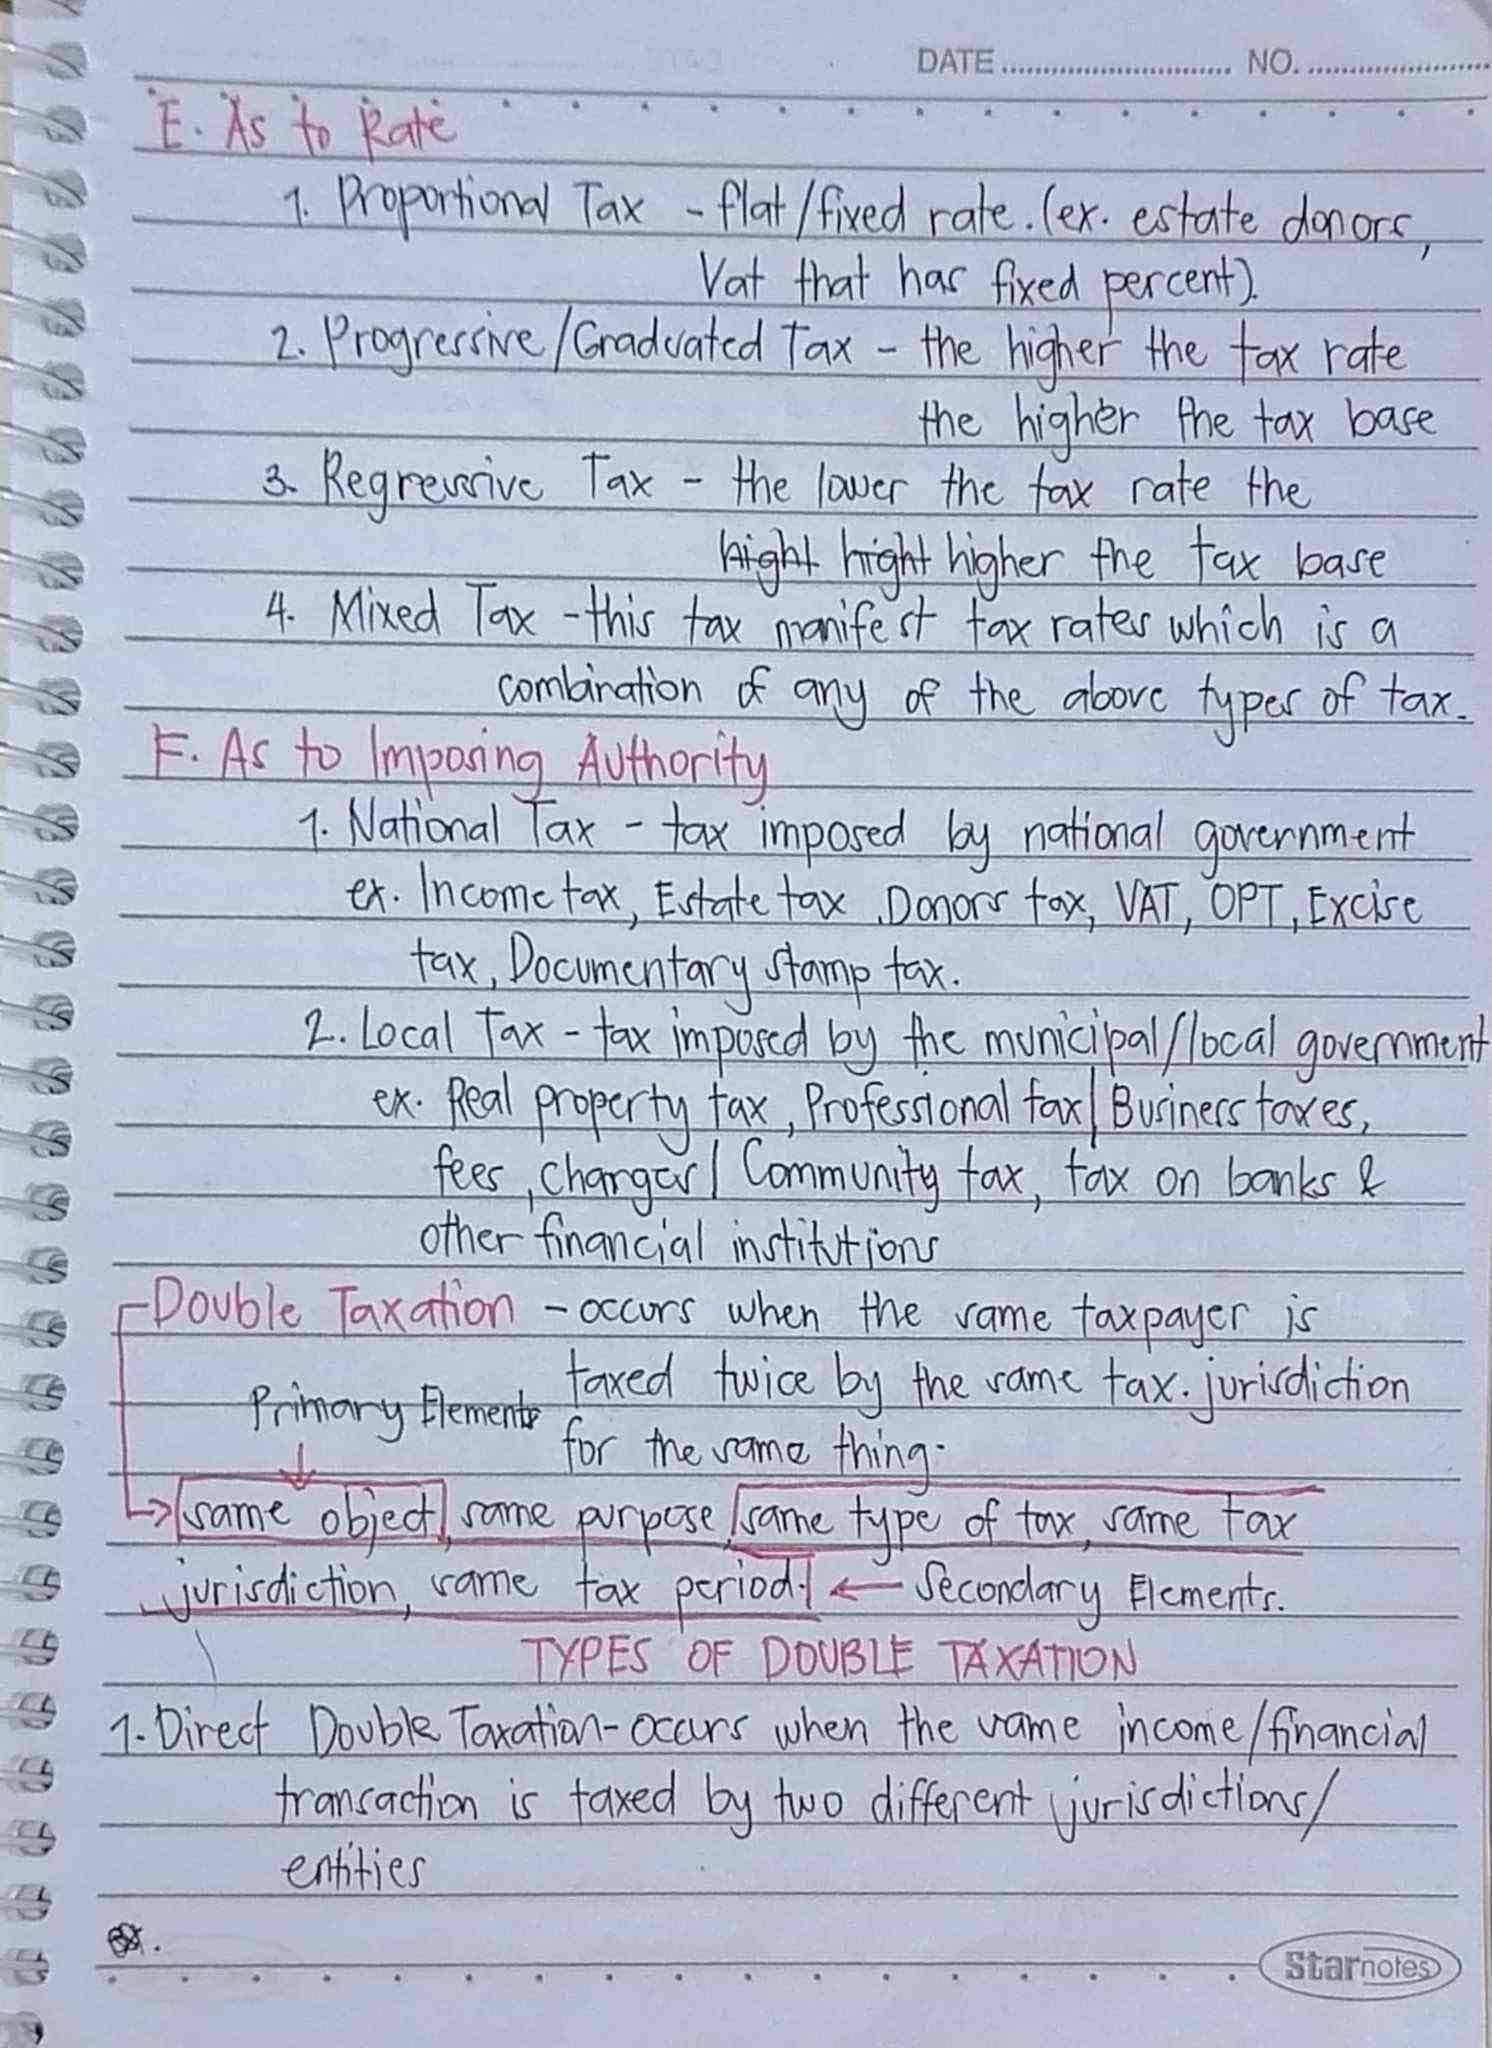 DATE ............................ NO. ......................
E. As to Rate
1. Proportional Tax - flat/fixed rate. (ex. estate donors,
Vat that has fixed percent).
2. Progressive/Graduated Tax - the higher the tax rate
the higher the tax base
3. Regressive Tax - the lower the tax rate the
hight hight higher the tax base
4. Mixed Tax - this tax manifest tax rates which is a
combination of any of the above types of tax.
F. As to Imposing Authority
1. National Tax - tax imposed by national government
ex. Income tax, Estate tax, Donors tax, VAT, OPT, Excise
tax, Documentary stamp tax.
2. Local Tax - tax imposed by the municipal/local government
ex. Real property tax, Professional tax/ Business taxes,
fees, charges/ Community tax, tax on banks &
other financial institutions
Double Taxation - occurs when the same taxpayer is
taxed twice by the same tax. jurisdiction
Primary Elements
for the same thing.
same object, same purpose, same type of tax, same tax
jurisdiction, same tax period. ← Secondary Elements.
TYPES OF DOUBLE TAXATION
1. Direct Double Taxation - occurs when the same income/financial
transaction is taxed by two different jurisdictions/
entities
Starnotes